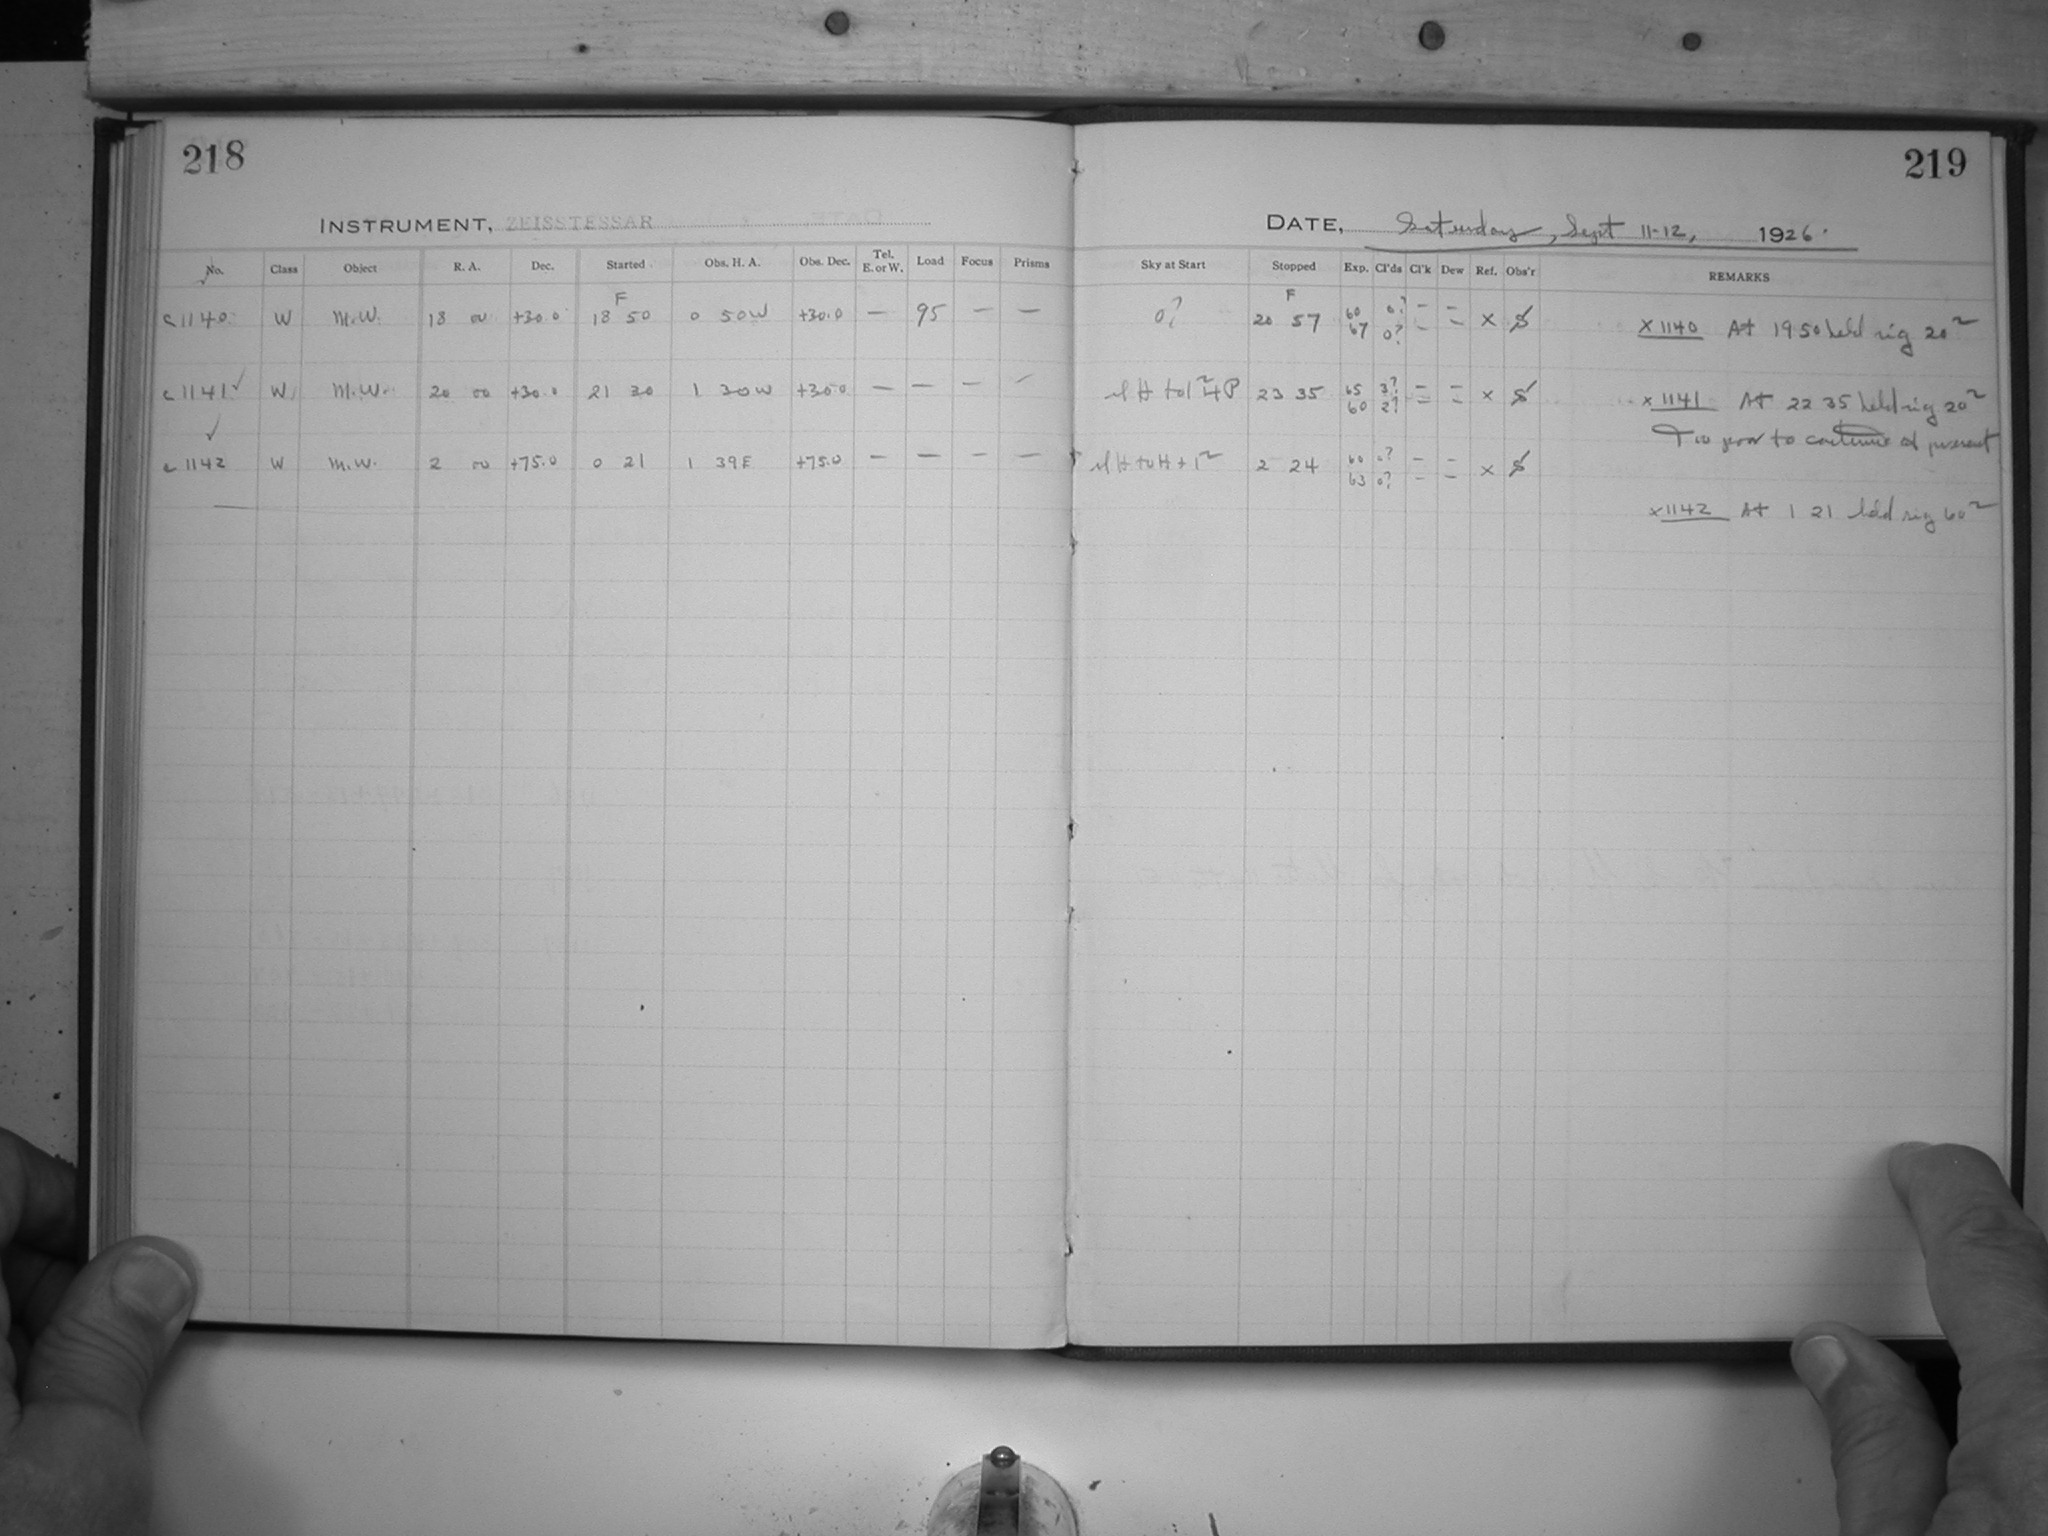 218
INSTRUMENT, ZEISSTESSAR
No. Class Object R. A. Dec. Started Obs. H. A. Obs. Dec. Tel. E. or W. Load Focus Prisms
c 1140 W M.W. 18 00 +30.0 F 18 50 0 50W +30.0 — 95 — —
c 1141 ✓ W M.W. 20 00 +30.0 21 30 1 30W +30.0 — — — —
✓
c 1142 W M.W. 2 00 +75.0 0 21 1 39E +75.0 — — — —
219
DATE, Saturday, Sept 11-12, 1926.
Sky at Start Stopped Exp. Cl'ds Cl'k Dew Ref. Obs'r REMARKS
0? F 20 57 60 0? – – x S
67 0? – –
x 1140 At 19 50 held rig 20
23 35 65 3? – – x S
60 2? – –
x 1141 At 22 35 held rig 20
Too poor to continue at present
2 24 60 0? – – x S
63 0? – –
x 1142 At 1 21 held rig 60